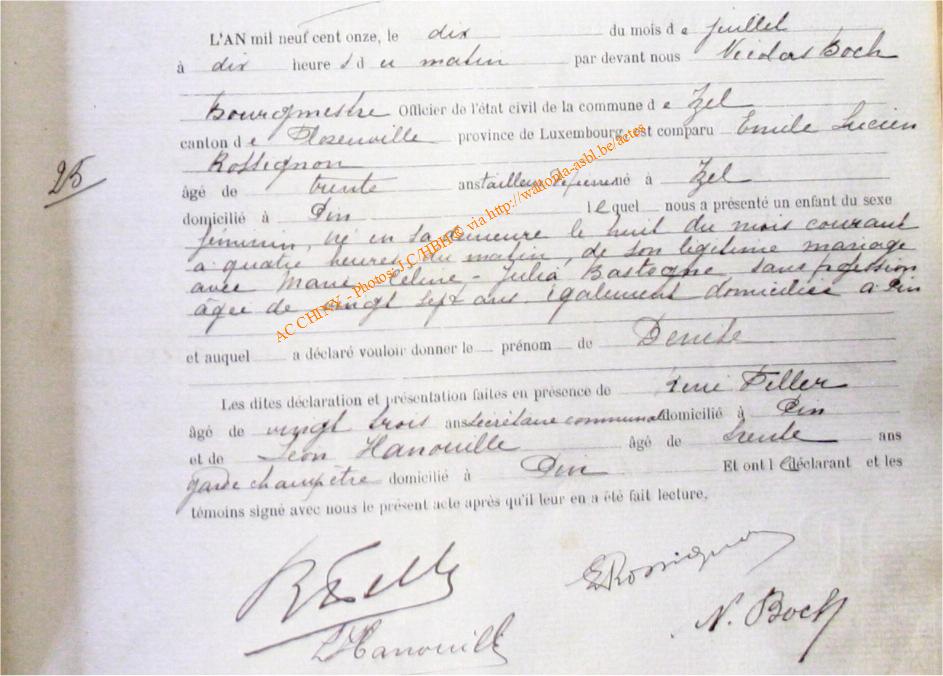 L'AN mil neuf cent onze, le dix du mois de juillet
à dix heures du matin par devant nous Nicolas Boch
Bourgmestre Officier de l'état civil de la commune de Izel
canton de province de Luxembourg est comparu Emile Lucien
Rossignon
25
âgé de trente ans tailleur né à Izel
domicilié à Pin lequel nous a présenté un enfant du sexe
féminin, né en sa demeure le huit du mois courant
à quatre heures du matin, de son légitime mariage
avec Marie-Céline-Julia Bastogne, sans profession
âgée de vingt sept ans également domiciliée à Pin
et auquel a déclaré vouloir donner le prénom de Denise
Les dites déclaration et présentation faites en présence de René Feller
âgé de vingt trois ans secrétaire communal domicilié à Pin
et de Léon Hanouille âgé de trente ans
garde champêtre domicilié à Pin Et ont le déclarant et les
témoins signé avec nous le présent acte après qu'il leur en a été fait lecture.
AC CHINY - Photos: J.C/HBHC via http://wallonia-asbl.be/actes
R Feller
E Rossignon
L Hanouille
N. Boch